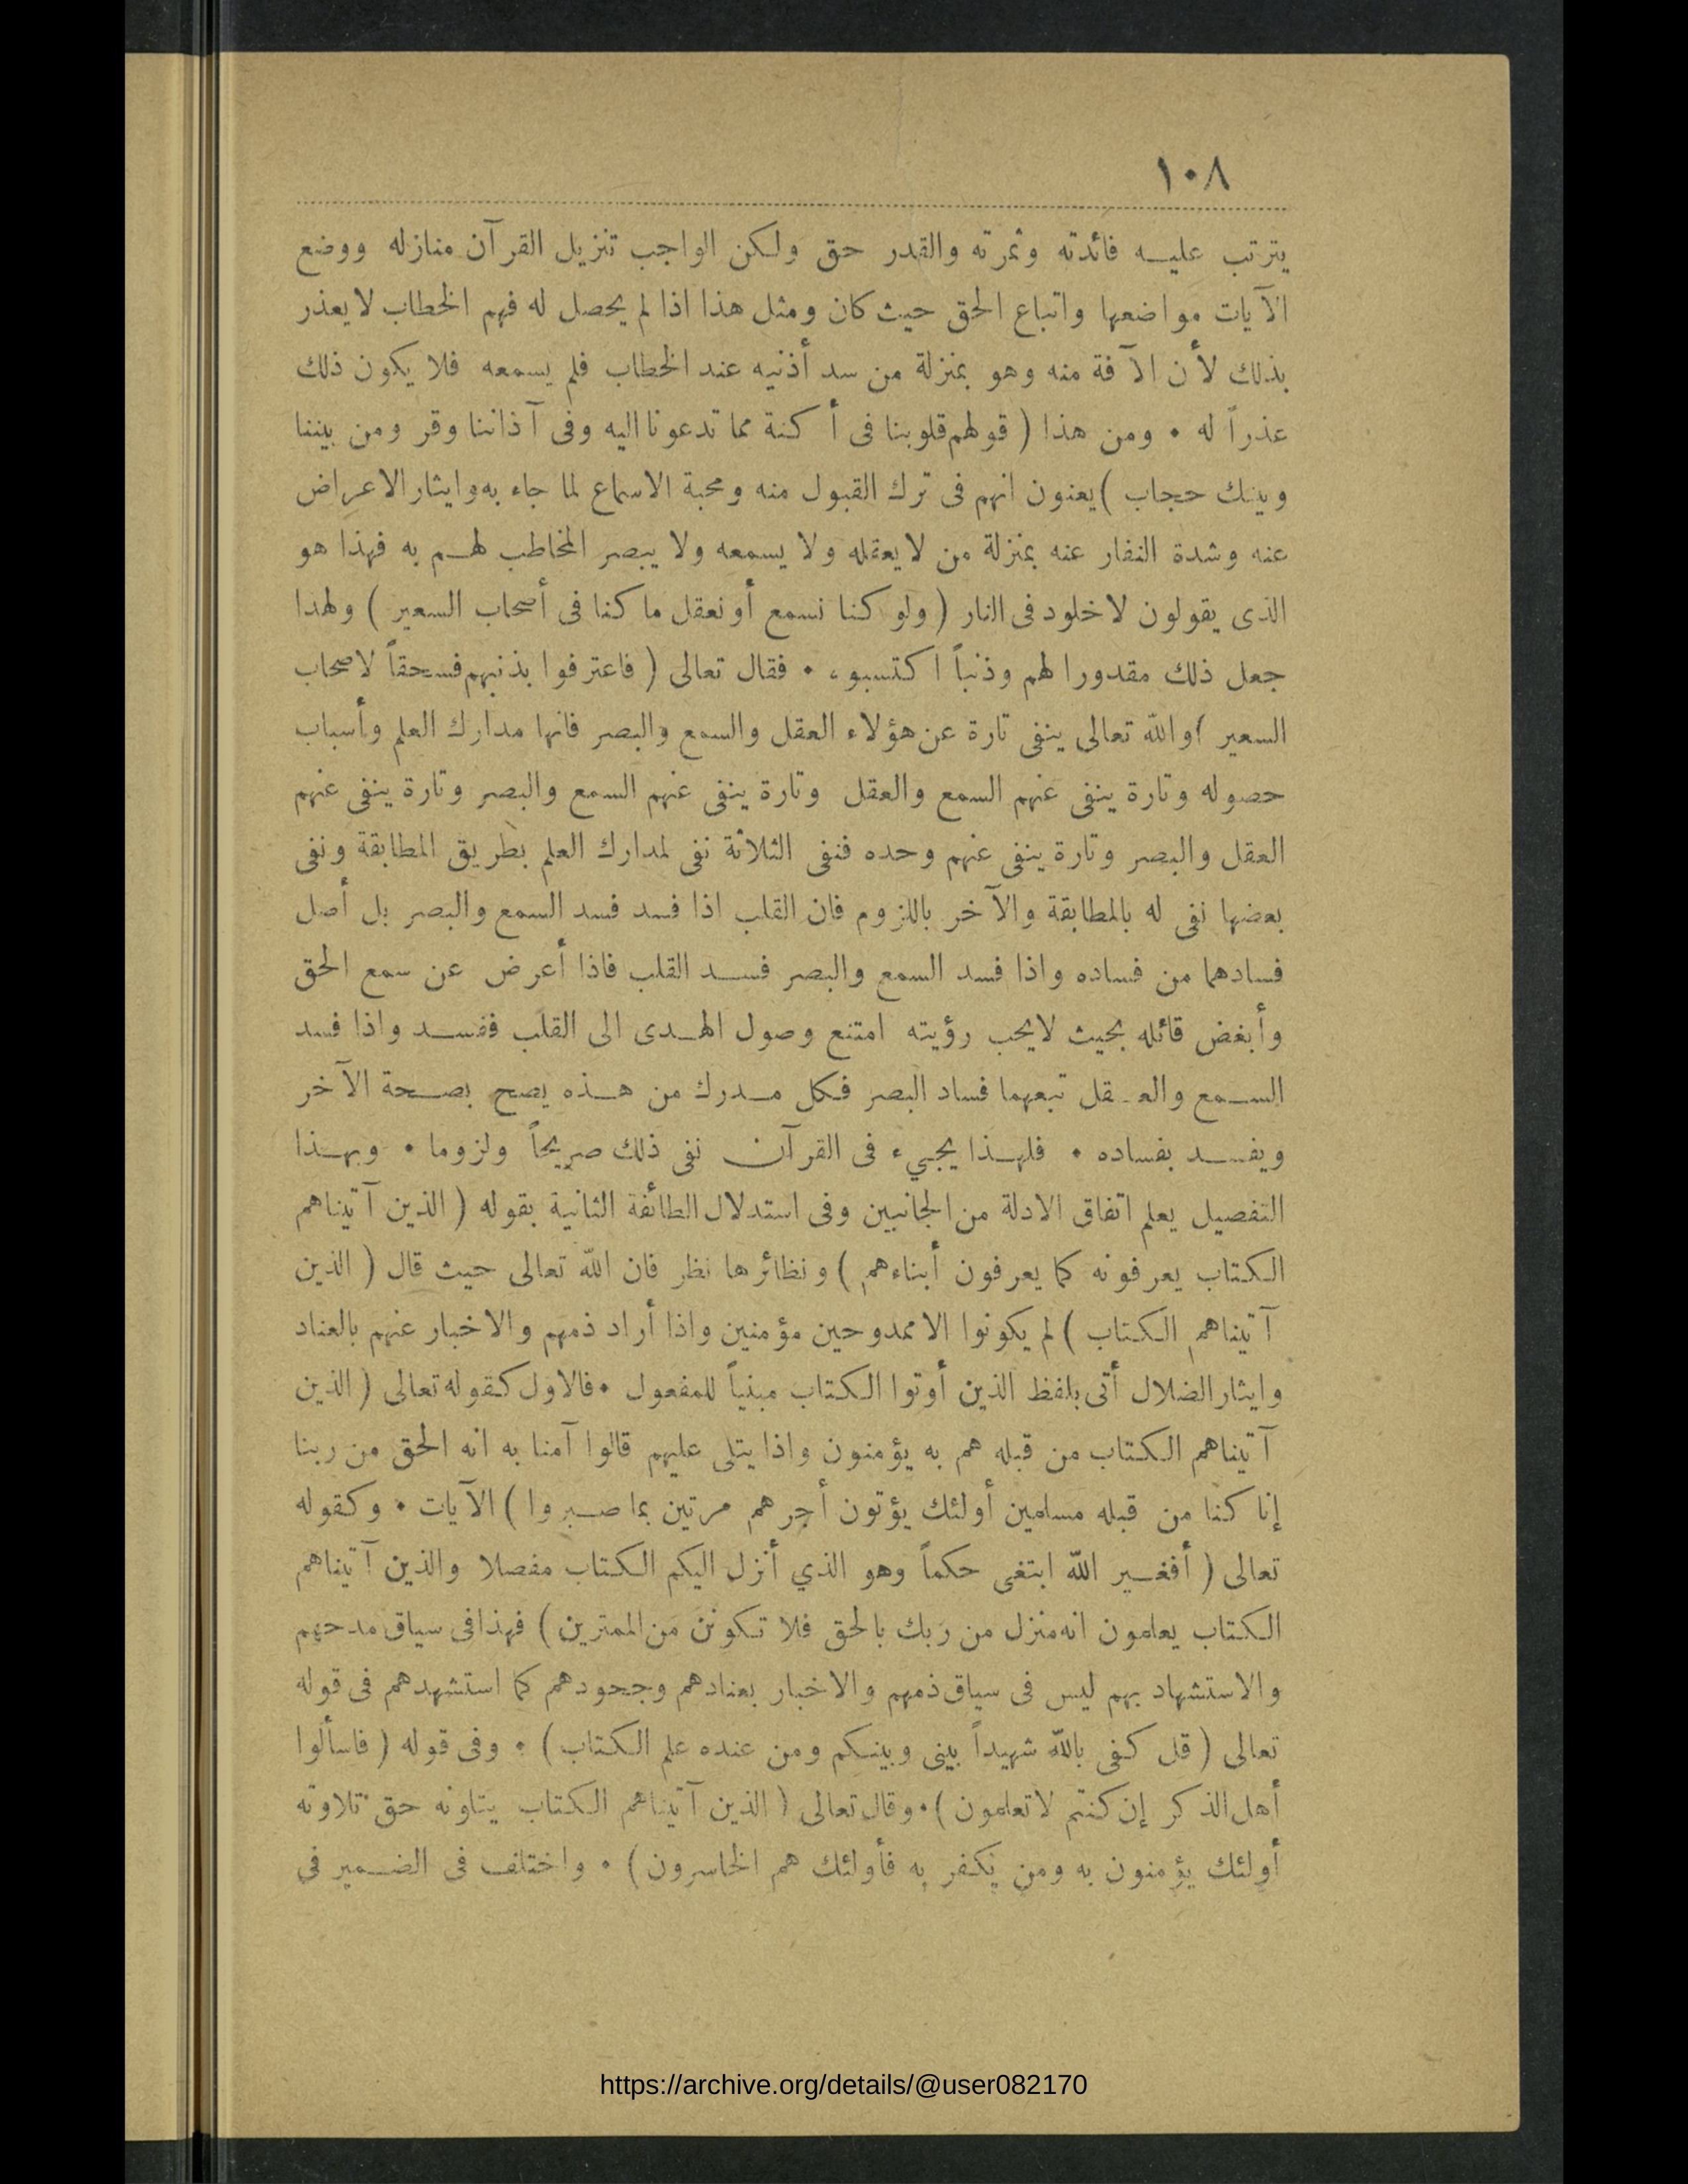 ١٠٨
يترتب عليه فائدته وثمرته والقدر حق ولكن الواجب تنزيل القرآن منازله ووضع
الآيات مواضعها واتباع الحق حيث كان ومثل هذا اذا لم يحصل له فهم الخطاب لا يعذر
بذلك لأن الآفة منه وهو بمنزلة من سد أذنيه عند الخطاب فلم يسمعه فلا يكون ذلك
عذراً له • ومن هذا ( قولهم قلوبنا فى أكنة مما تدعونا اليه وفى آذاننا وقر ومن بيننا
وبينك حجاب ) يعنون انهم فى ترك القبول منه ومحبة الاسماع لما جاء به وايثار الاعراض
عنه وشدة النفار عنه بمنزلة من لا يعقله ولا يسمعه ولا يبصر المخاطب لهم به فهذا هو
الذى يقولون لا خلود فى النار ( ولو كنا نسمع أو نعقل ما كنا فى أصحاب السعير ) ولهذا
جعل ذلك مقدورا لهم وذنباً اكتسبوه • فقال تعالى ( فاعترفوا بذنبهم فسحقاً لاصحاب
السعير ) والله تعالى ينفى تارة عن هؤلاء العقل والسمع والبصر فانها مدارك العلم وأسباب
حصوله وتارة ينفى عنهم السمع والعقل وتارة ينفى عنهم السمع والبصر وتارة ينفى عنهم
العقل والبصر وتارة ينفى عنهم وحده فنفى الثلاثة نفى لمدارك العلم بطريق المطابقة ونفى
بعضها نفى له بالمطابقة والآخر باللزوم فان القلب اذا فسد فسد السمع والبصر بل أصل
فسادهما من فساده واذا فسد السمع والبصر فسد القلب فاذا أعرض عن سمع الحق
وأبغض قائله بحيث لا يحب رؤيته امتنع وصول الهدى الى القلب ففسد واذا فسد
السمع والعقل تبعهما فساد البصر فكل مدرك من هذه يصح بصحة الآخر
ويفسد بفساده • فلهذا يجيء فى القرآن نفى ذلك صريحاً ولزوما • وبهذا
التفصيل يعلم اتفاق الادلة من الجانبين وفى استدلال الطائفة الثانية بقوله ( الذين آتيناهم
الكتاب يعرفونه كما يعرفون أبناءهم ) ونظائرها نظر فان الله تعالى حيث قال ( الذين
آتيناهم الكتاب ) لم يكونوا الا ممدوحين مؤمنين واذا أراد ذمهم والاخبار عنهم بالعناد
وايثار الضلال أتى بلفظ الذين أوتوا الكتاب مبنياً للمفعول • فالاول كقوله تعالى ( الذين
آتيناهم الكتاب من قبله هم به يؤمنون واذا يتلى عليهم قالوا آمنا به انه الحق من ربنا
إنا كنا من قبله مسلمين أولئك يؤتون أجرهم مرتين بما صبروا ) الآيات • وكقوله
تعالى ( أفغير الله ابتغى حكماً وهو الذي أنزل اليكم الكتاب مفصلا والذين آتيناهم
الكتاب يعلمون انه منزل من ربك بالحق فلا تكونن من الممترين ) فهذا فى سياق مدحهم
والاستشهاد بهم ليس فى سياق ذمهم والاخبار بعنادهم وجحودهم كما استشهدهم فى قوله
تعالى ( قل كفى بالله شهيداً بينى وبينكم ومن عنده علم الكتاب ) • وفى قوله ( فاسألوا
أهل الذكر إن كنتم لا تعلمون ) • وقال تعالى ( الذين آتيناهم الكتاب يتلونه حق تلاوته
أولئك يؤمنون به ومن يكفر به فأولئك هم الخاسرون ) • واختلف فى الضمير في
https://archive.org/details/@user082170